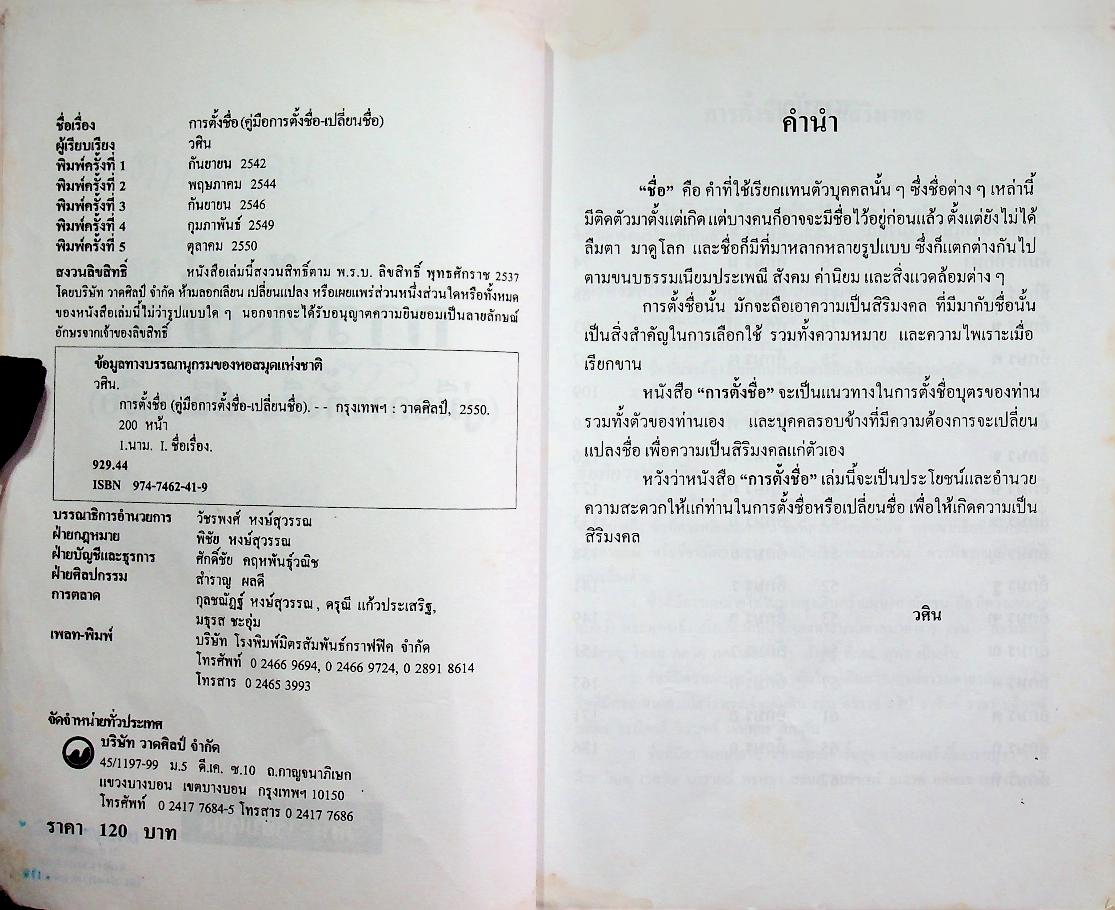 ชื่อเรื่อง การตั้งชื่อ (คู่มือการตั้งชื่อ-เปลี่ยนชื่อ)
ผู้เรียบเรียง วศิน
พิมพ์ครั้งที่ 1 กันยายน 2542
พิมพ์ครั้งที่ 2 พฤษภาคม 2544
พิมพ์ครั้งที่ 3 กันยายน 2546
พิมพ์ครั้งที่ 4 กุมภาพันธ์ 2549
พิมพ์ครั้งที่ 5 ตุลาคม 2550
สงวนลิขสิทธิ์ หนังสือเล่มนี้สงวนสิทธิ์ตาม พ.ร.บ. ลิขสิทธิ์ พุทธศักราช 2537
โดยบริษัท วาดศิลป์ จำกัด ห้ามลอกเลียน เปลี่ยนแปลง หรือเผยแพร่ส่วนหนึ่งส่วนใดหรือทั้งหมด
ของหนังสือเล่มนี้ไม่ว่ารูปแบบใด ๆ นอกจากจะได้รับอนุญาตความยินยอมเป็นลายลักษณ์
อักษรจากเจ้าของลิขสิทธิ์
ข้อมูลทางบรรณานุกรมของหอสมุดแห่งชาติ
วศิน.
การตั้งชื่อ (คู่มือการตั้งชื่อ-เปลี่ยนชื่อ). - - กรุงเทพฯ : วาดศิลป์, 2550.
200 หน้า
1.นาม. I. ชื่อเรื่อง.
929.44
ISBN 974-7462-41-9
บรรณาธิการอำนวยการ วัชรพงศ์ หงษ์สุวรรณ
ฝ่ายกฎหมาย พิชัย หงษ์สุวรรณ
ฝ่ายบัญชีและธุรการ ศักดิ์ชัย คฤหพันธุ์วณิช
ฝ่ายศิลปกรรม สำราญ ผลดี
การตลาด กุลชณัฏฐ์ หงษ์สุวรรณ, ดรุณี แก้วประเสริฐ,
มธุรส ชะอุ่ม
เพลท-พิมพ์ บริษัท โรงพิมพ์มิตรสัมพันธ์กราฟฟิค จำกัด
โทรศัพท์ 0 2466 9694, 0 2466 9724, 0 2891 8614
โทรสาร 0 2465 3993
จัดจำหน่ายทั่วประเทศ
บริษัท วาดศิลป์ จำกัด
45/1197-99 ม.5 ดี.เค. ซ.10 ถ.กาญจนาภิเษก
แขวงบางบอน เขตบางบอน กรุงเทพฯ 10150
โทรศัพท์ 0 2417 7684-5 โทรสาร 0 2417 7686
ราคา 120 บาท
คำนำ
“ชื่อ” คือ คำที่ใช้เรียกแทนตัวบุคคลนั้น ๆ ซึ่งชื่อต่าง ๆ เหล่านี้
มีติดตัวมาตั้งแต่เกิด แต่บางคนก็อาจจะมีชื่อไว้อยู่ก่อนแล้ว ตั้งแต่ยังไม่ได้
ลืมตา มาดูโลก และชื่อก็มีที่มาหลากหลายรูปแบบ ซึ่งก็แตกต่างกันไป
ตามขนบธรรมเนียมประเพณี สังคม ค่านิยม และสิ่งแวดล้อมต่าง ๆ
การตั้งชื่อนั้น มักจะถือเอาความเป็นสิริมงคล ที่มีมากับชื่อนั้น
เป็นสิ่งสำคัญในการเลือกใช้ รวมทั้งความหมาย และความไพเราะเมื่อ
เรียกขาน
หนังสือ “การตั้งชื่อ” จะเป็นแนวทางในการตั้งชื่อบุตรของท่าน
รวมทั้งตัวของท่านเอง และบุคคลรอบข้างที่มีความต้องการจะเปลี่ยน
แปลงชื่อ เพื่อความเป็นสิริมงคลแก่ตัวเอง
หวังว่าหนังสือ “การตั้งชื่อ” เล่มนี้จะเป็นประโยชน์และอำนวย
ความสะดวกให้แก่ท่านในการตั้งชื่อหรือเปลี่ยนชื่อ เพื่อให้เกิดความเป็น
สิริมงคล
วศิน